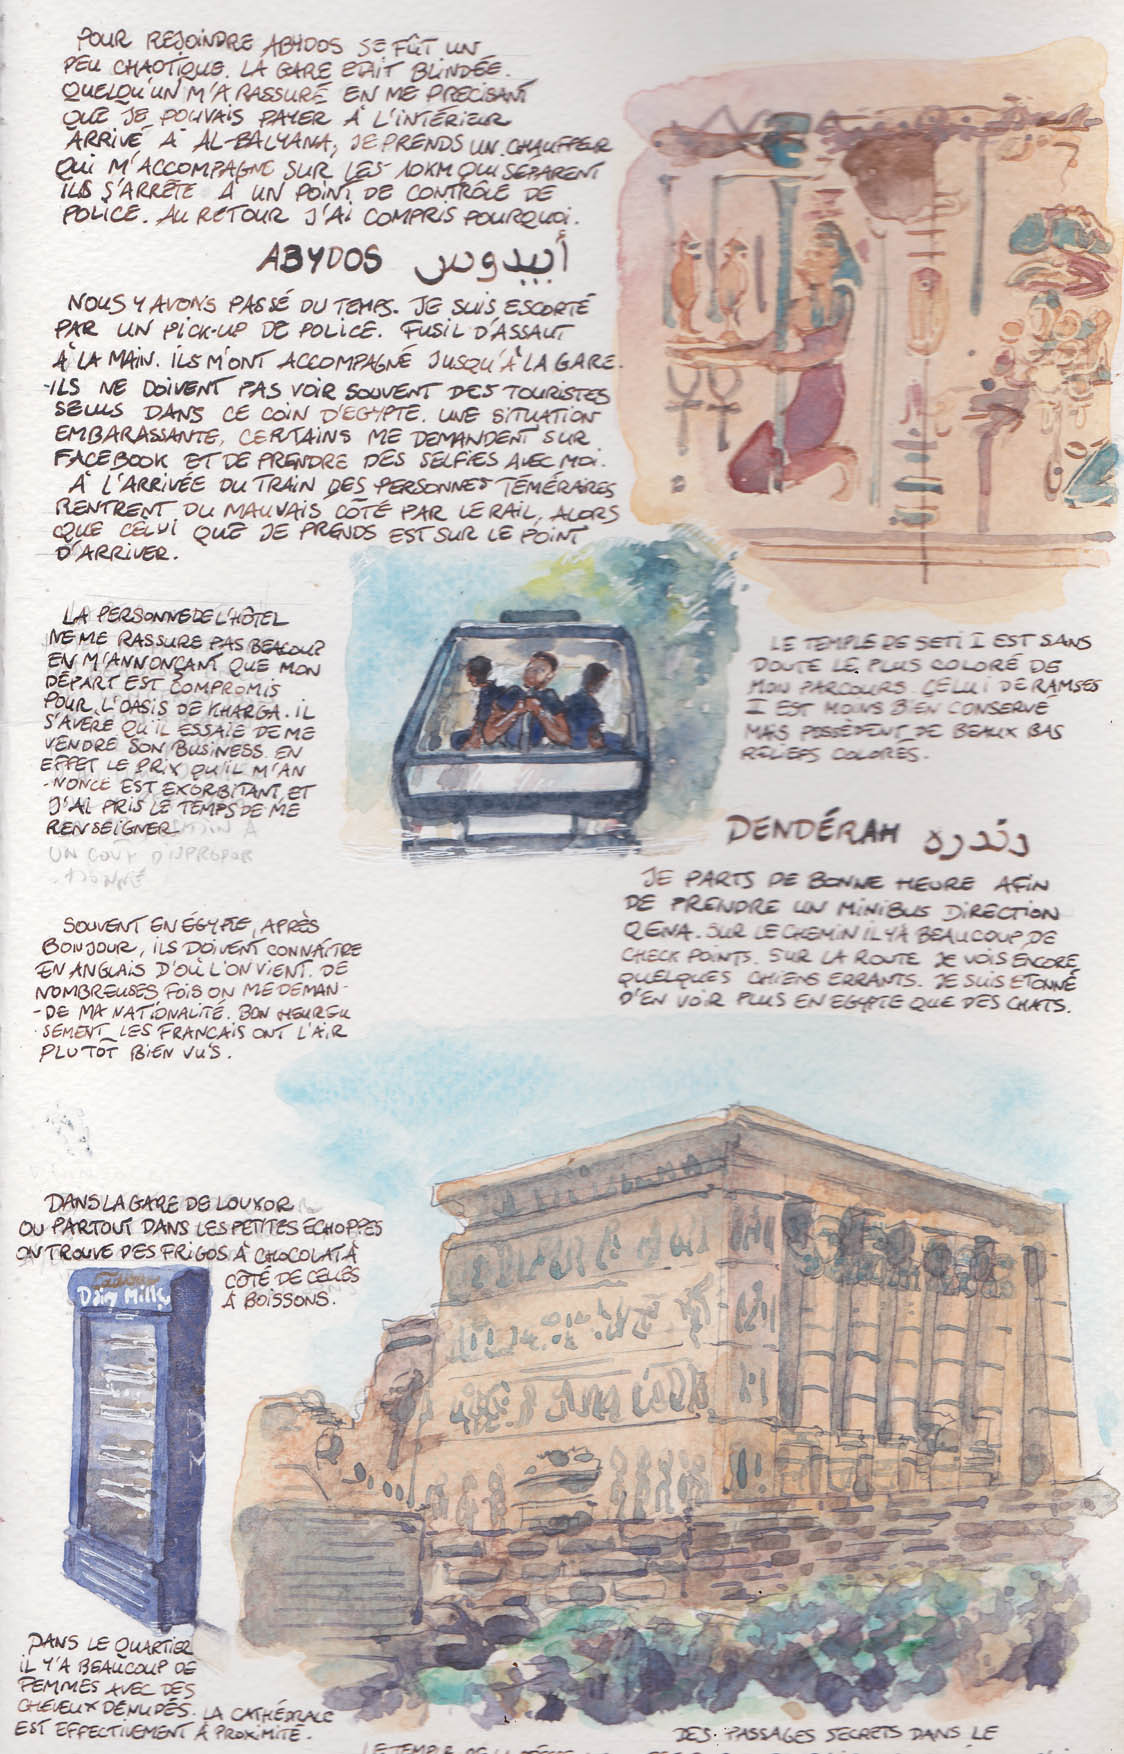 POUR REJOINDRE ABYDOS SE FÛT UN
PEU CHAOTIQUE. LA GARE ETAIT BLINDÉE.
QUELQU'UN M'A RASSURÉ EN ME PRECISANT
QUE JE POUVAIS PAYER À L'INTÉRIEUR
ARRIVÉ À AL-BALYANA, JE PRENDS UN CHAUFFER
QUI M'ACCOMPAGNE SUR LES 10KM QUI SÉPARENT
ILS S'ARRÊTE À UN POINT DE CONTRÔLE DE
POLICE. AU RETOUR J'AI COMPRIS POURQUOI.
ABYDOS أبيدوس
NOUS Y AVONS PASSÉ DU TEMPS. JE SUIS ESCORTÉ
PAR UN PICK-UP DE POLICE. FUSIL D'ASSAUT
À LA MAIN. ILS M'ONT ACCOMPAGNÉ JUSQU'À LA GARE.
-ILS NE DOIVENT PAS VOIR SOUVENT DES TOURISTES
SEULS DANS CE COIN D'EGYPTE. UNE SITUATION
EMBARASSANTE, CERTAINS ME DEMANDENT SUR
FACEBOOK ET DE PRENDRE DES SELFIES AVEC MOI.
À L'ARRIVÉE DU TRAIN DES PERSONNES TÉMÉRAIRES
RENTRENT DU MAUVAIS CÔTÉ PAR LE RAIL, ALORS
QUE CELUI QUE JE PRENDS EST SUR LE POINT
D'ARRIVER.
LA PERSONNE DE L'HÔTEL
NE ME RASSURE PAS BEACOUP
EN M'ANNONÇANT QUE MON
DÉPART EST COMPROMIS
POUR L'OASIS DE KHARGA. IL
S'AVERE QU'IL ESSAIE DE ME
VENDRE SON BUSINESS. EN
EFFET LE PRIX QU'IL M'AN
-NONCE EST EXORBITANT, ET
J'AI PRIS LE TEMPS DE ME
RENSEIGNER
UN COUT DISPROPOR
-TIONNÉ
LE TEMPLE DE SETI I EST SANS
DOUTE LE PLUS COLORÉ DE
MON PARCOURS. CELUI DE RAMSES
I EST MOINS BIEN CONSERVÉ
MAIS POSSÈDENT DE BEAUX BAS
RELIEFS COLORÉS.
DENDÉRAH دندره
JE PARTS DE BONNE HEURE AFIN
DE PRENDRE UN MINIBUS DIRECTION
QENA. SUR LE CHEMIN IL Y A BEAUCOUP DE
CHECK POINTS. SUR LA ROUTE JE VOIS ENCORE
QUELQUES CHIENS ERRANTS. JE SUIS ETONNÉ
D'EN VOIR PLUS EN EGYPTE QUE DES CHATS.
SOUVENT EN ÉGYPTE, APRÈS
BONJOUR, ILS DOIVENT CONNAÎTRE
EN ANGLAIS D'OÙ L'ON VIENT. DE
NOMBREUSES FOIS ON ME DEMAN-
-DE MA NATIONALITÉ. BON HEUREU
-SEMENT LES FRANCAIS ONT L'AIR
PLUTÔT BIEN VUS.
DANS LA GARE DE LOUXOR
OU PARTOUT DANS LES PETITES ECHOPPES
ON TROUVE DES FRIGOS À CHOCOLAT À
CÔTÉ DE CELLES
À BOISSONS.
Dairy Milk
DANS LE QUARTIER
IL Y'A BEAUCOUP DE
FEMMES AVEC DES
CHEVEUX DENUDÉS. LA CATHÉDRALE
EST EFFECTIVEMENT À PROXIMITÉ.
DES PASSAGES SECRETS DANS LE
LE TEMPLE DE LA